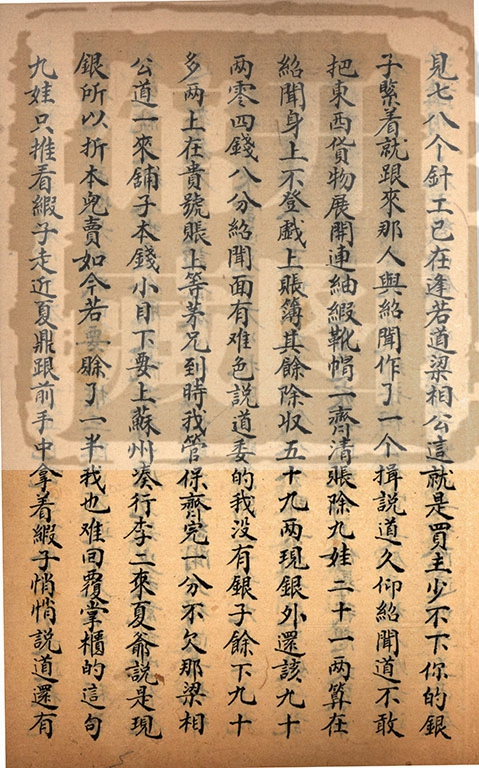 見七八个針工已在逢若道梁相公這就是買主少不下你的銀
子緊着就跟來那人與紹聞作了一个揖說道久仰紹聞道不敢
把東西貨物展開連紬緞靴帽一齊清賬除九娃二十一兩算在
紹聞身上不登戲上賬簿其餘除收五十九兩現銀外還該九十
兩零四錢八分紹聞面有难色說道委的我没有銀子餘下九十
多两上在貴號賬上等茅兄到時我管保齊完一分不欠那梁相
公道一來舖子本錢小目下要上蘇州凑行李二來夏爺說是現
銀所以折本兒賣如今若要賒了一半我也难回覆掌櫃的這句
九娃只推看緞子走近夏鼎跟前手中拿着緞子悄悄說道還有